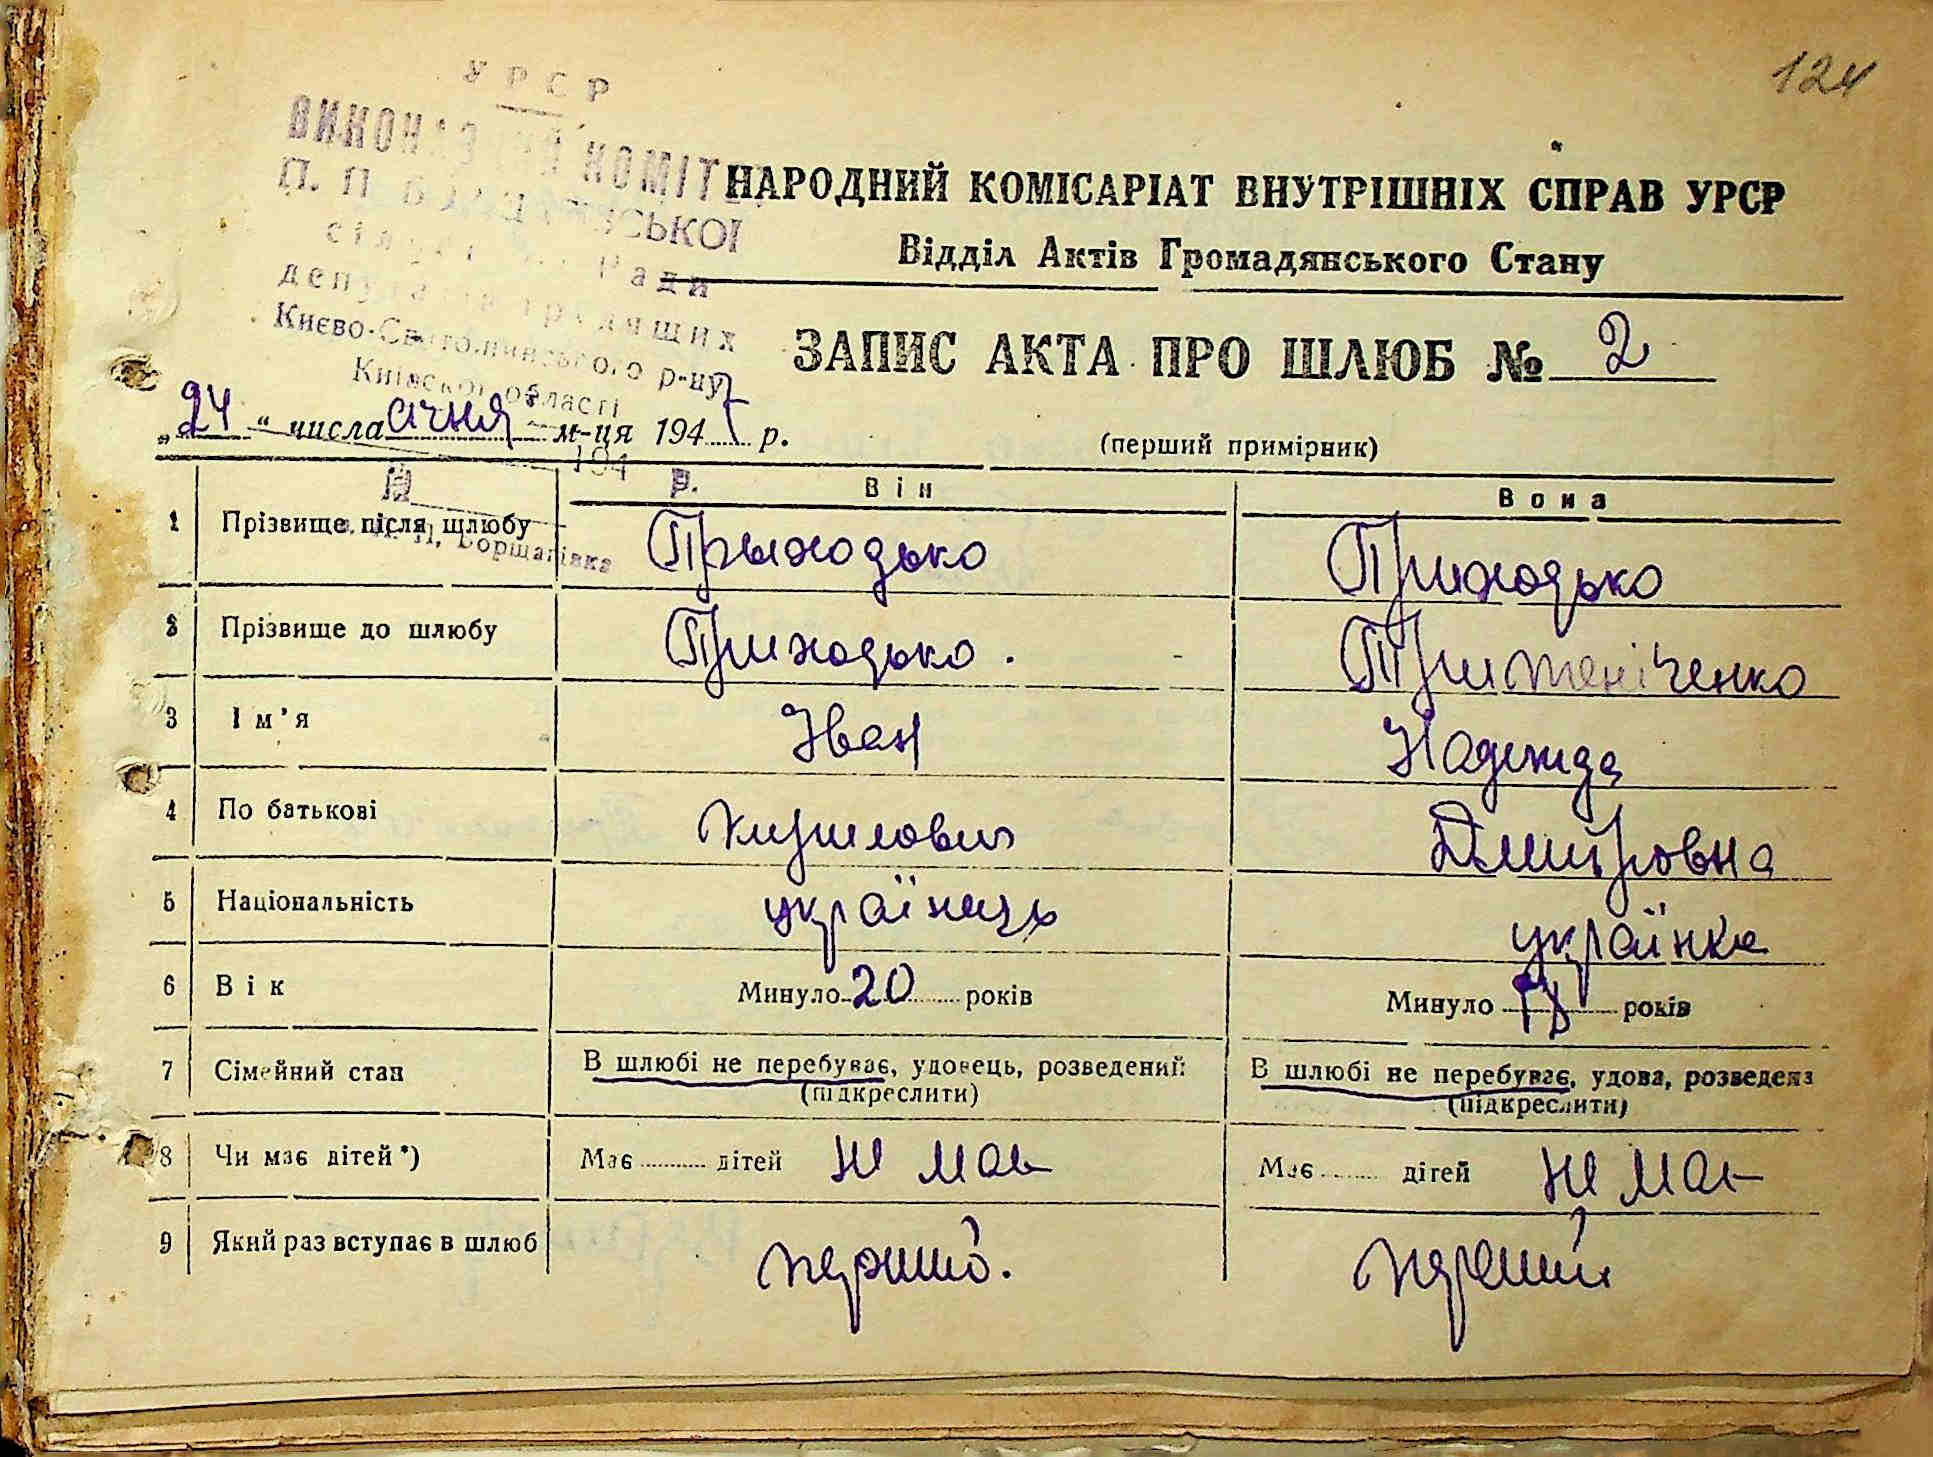 124
УРСР
ВИКОНАВЧИЙ КОМІТЕТ
П. П. БОРЩАГІВСЬКОЇ
сільської Ради
депутатів трудящих
Києво-Святошинського р-ну
Київської області
НАРОДНИЙ КОМІСАРІАТ ВНУТРІШНІХ СПРАВ УРСР
Відділ Актів Громадянського Стану
ЗАПИС АКТА ПРО ШЛЮБ № 2
„24“ числа січня м-ця 1947 р.
(перший примірник)
194 р.
П. П. Борщагівка
Він Вона
1 Прізвище після шлюбу Приходько Приходько
2 Прізвище до шлюбу Приходько. 
3 Ім’я Іван Надежда
4 По батькові Кирилович Дмитровна
5 Національність українець українка
6 Вік Минуло 20 років Минуло 18 років
7 Сімейний стан В шлюбі не перебуває, удовець, розведений (підкреслити) В шлюбі не перебуває, удова, розведена (підкреслити)
8 Чи має дітей*) Має дітей не має Має дітей не має
9 Який раз вступає в шлюб перший. перший